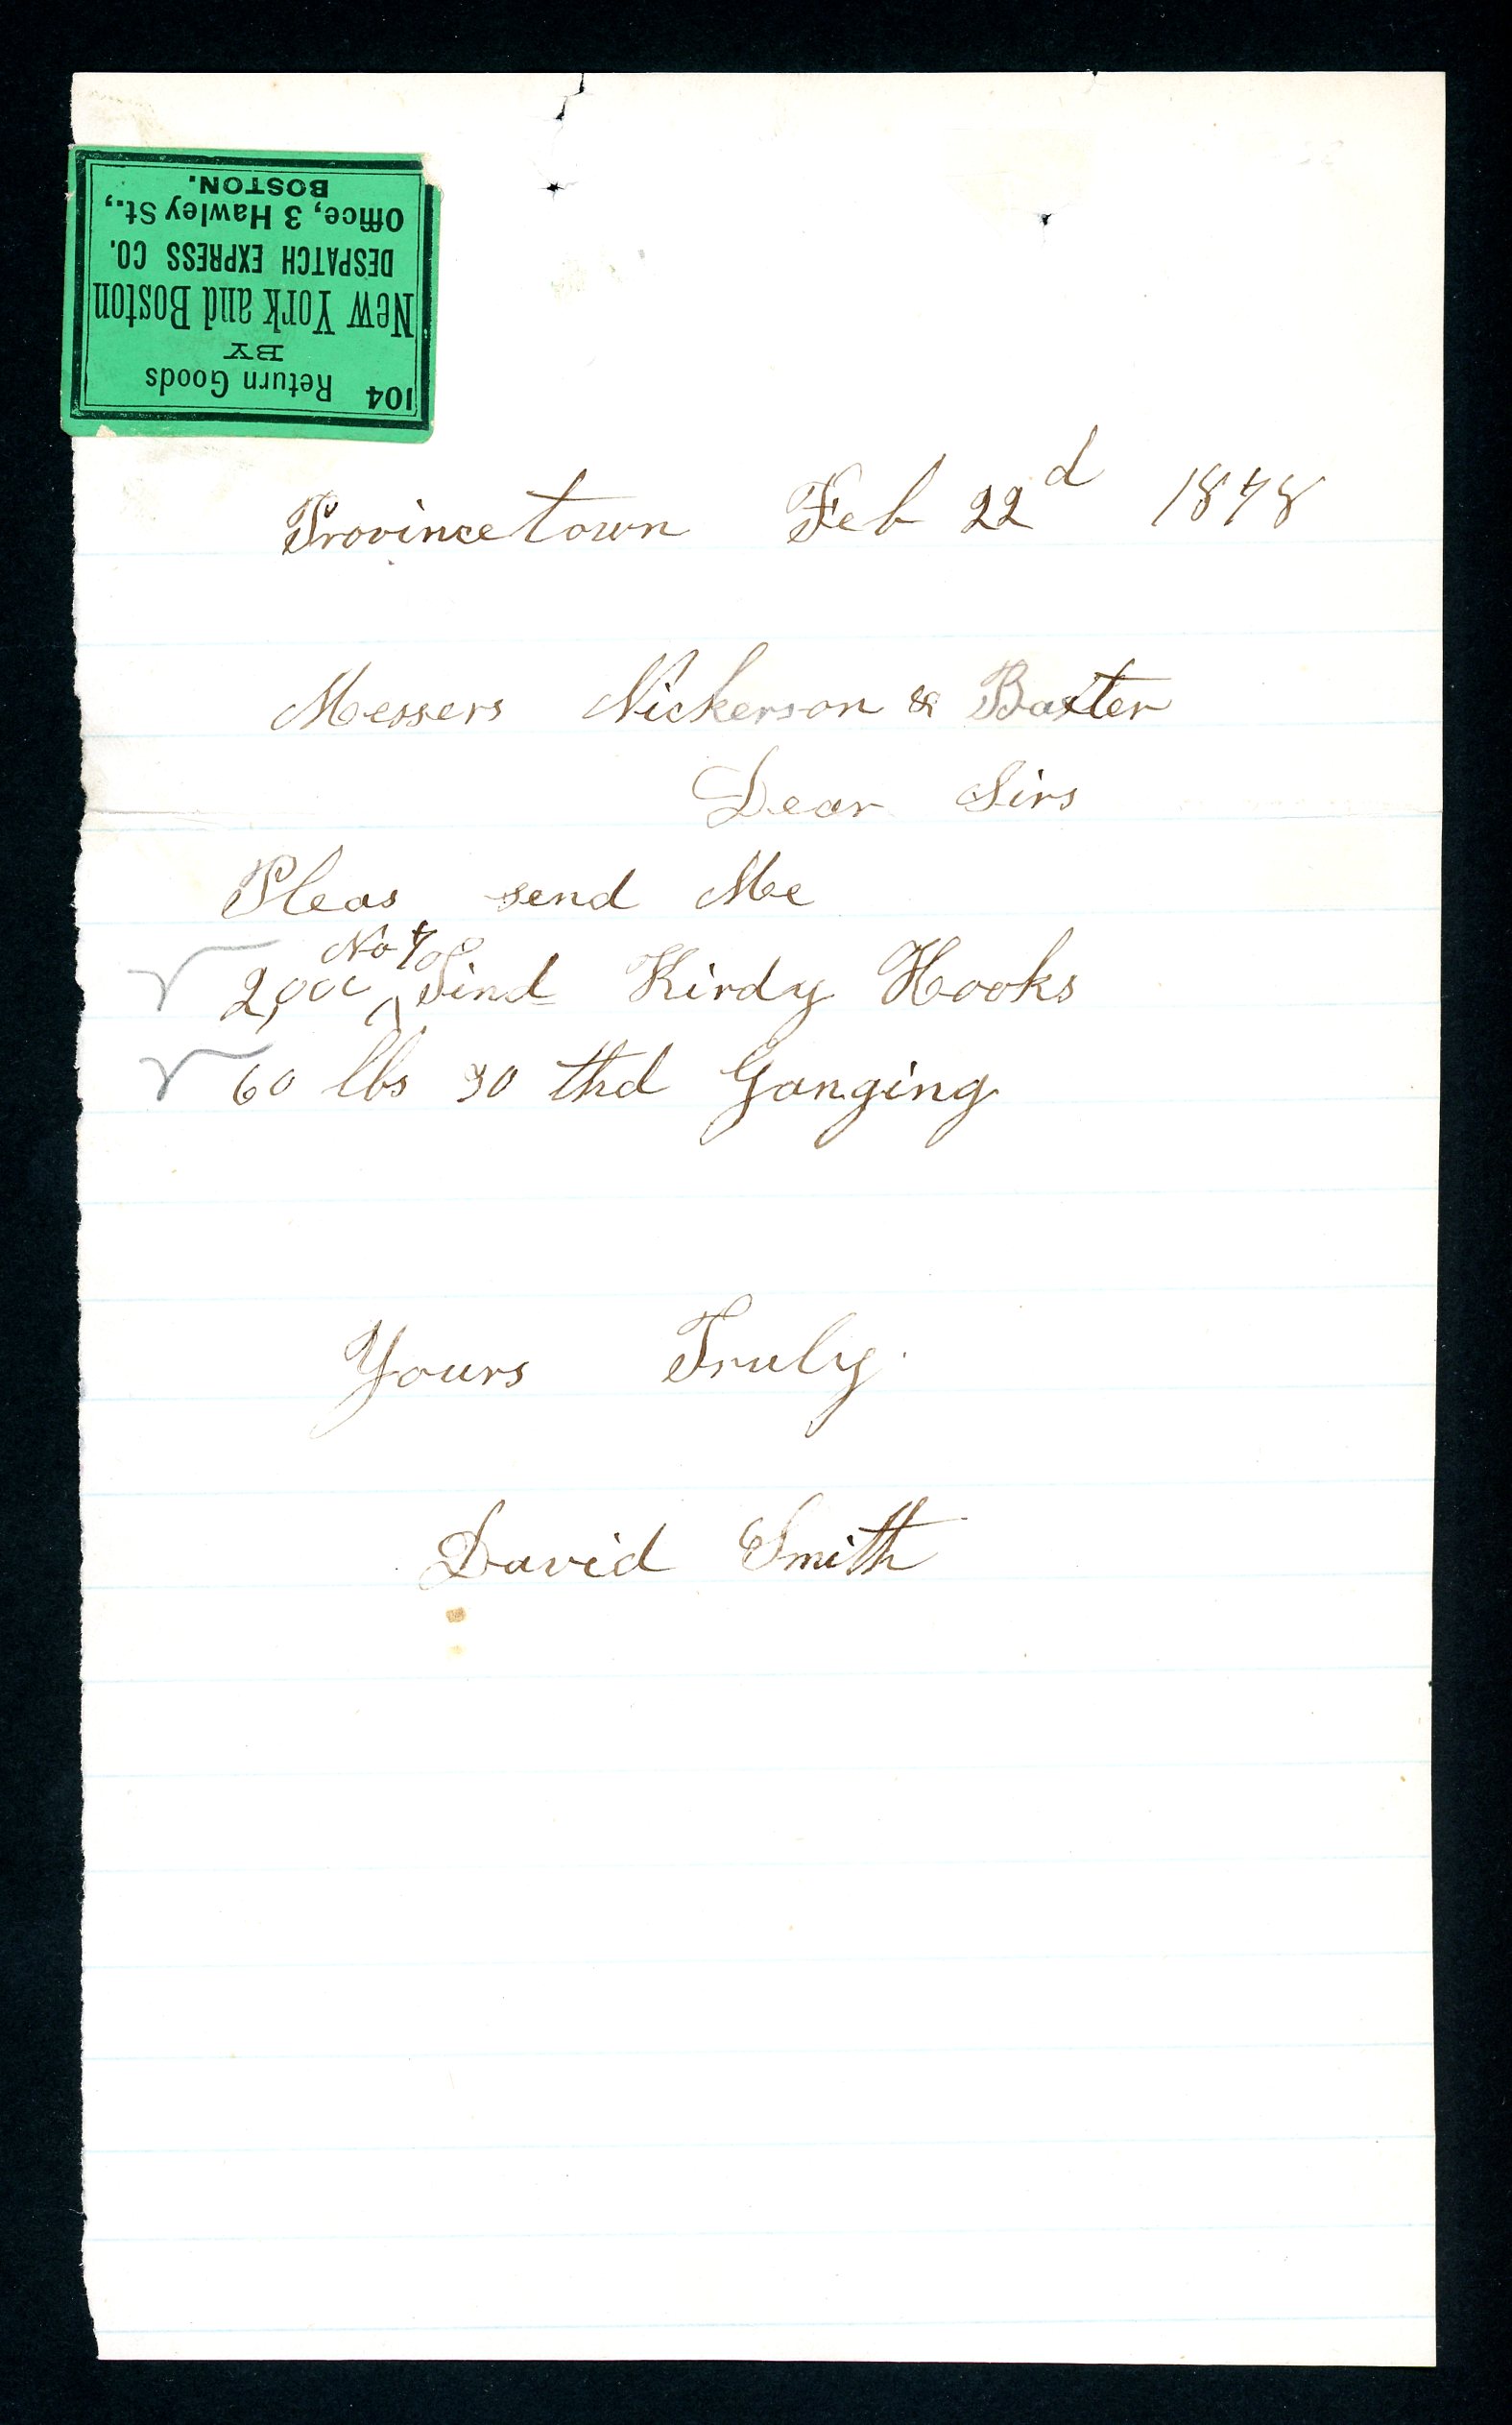 104 Return Goods
BY
New York and Boston
DESPATCH EXPRESS CO.
Office, 3 Hawley St.,
BOSTON.
Provincetown Feb 22d 1878
Messers Nickerson & Baxter
Dear Sirs
Pleas send Me
No
2,000 Tind Kirdy Hooks
60 lbs 30 thd Ganging
Yours Truly.
David Smith